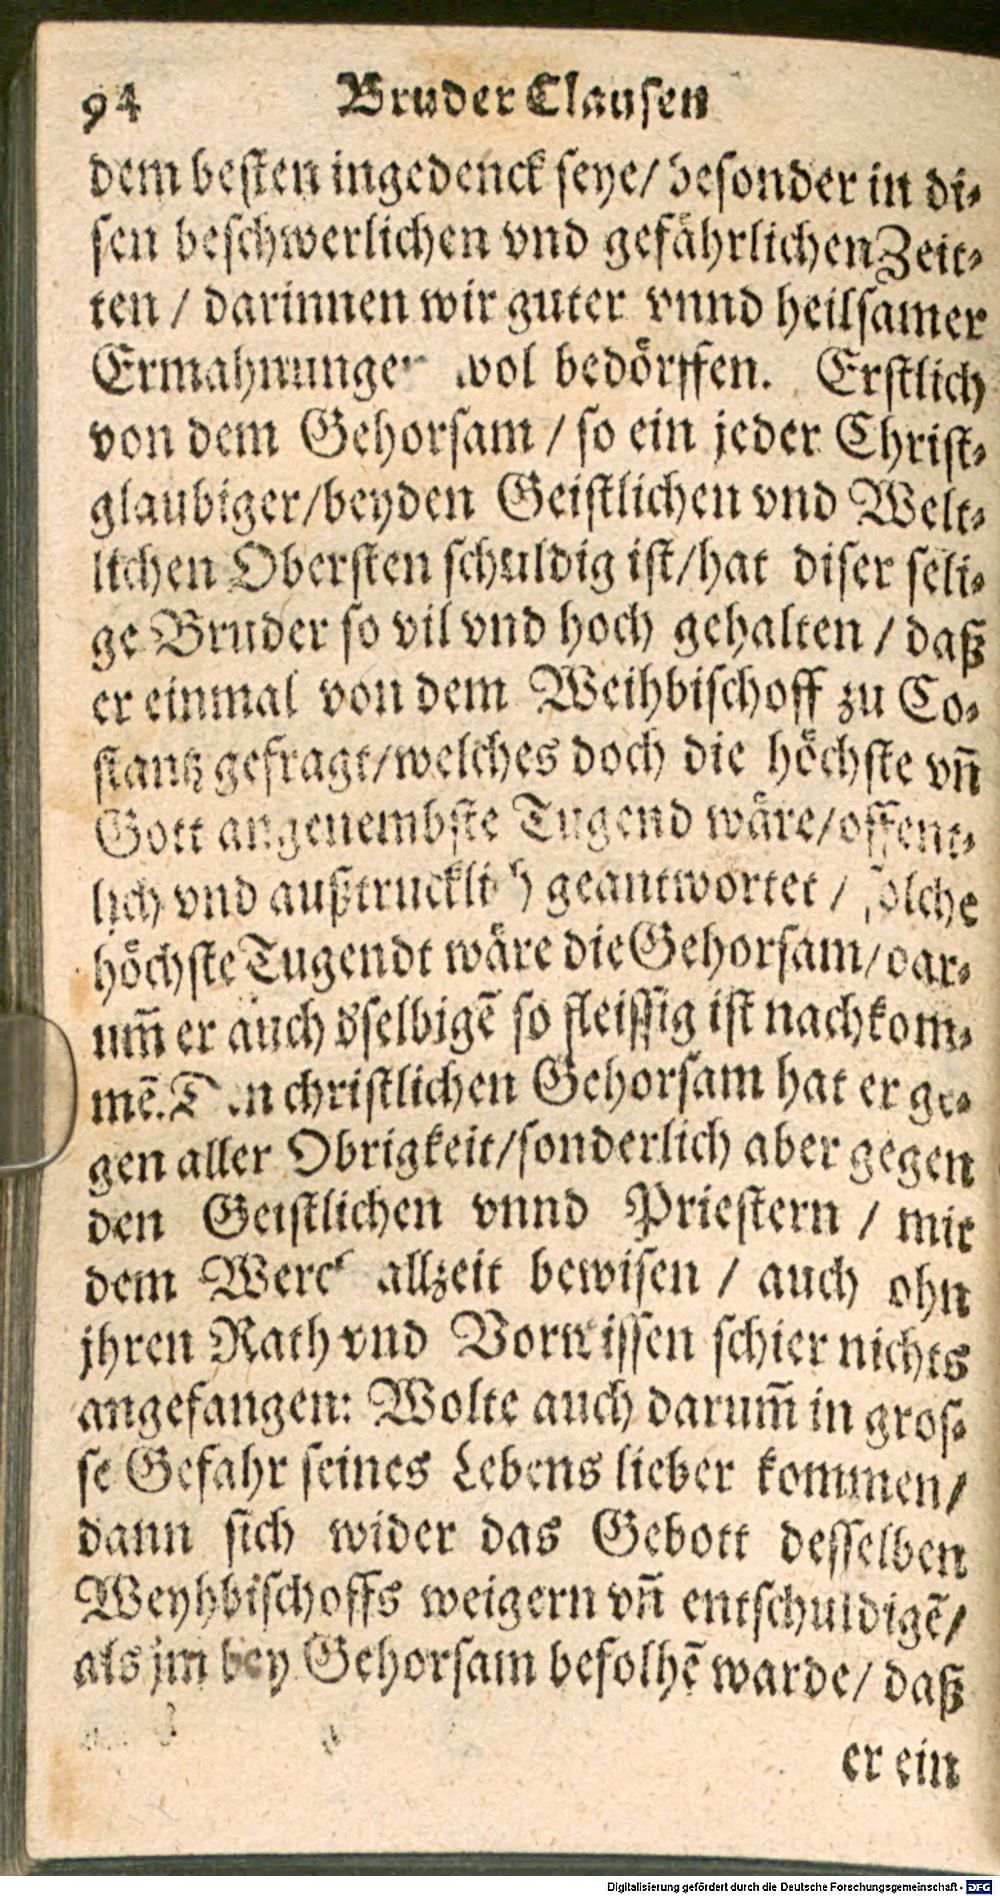 94 Bruder Clausen
dem besten ingedenck seye/ besonder in di-
sen beschwerlichen vnd gefährlichen Zeit-
ten / darinnen wir guter vnnd heilsamer
Ermahnungen wol bedörffen. Erstlich
von dem Gehorsam / so ein jeder Christ-
glaubiger/beyden Geistlichen vnd Welt-
lichen Obersten schuldig ist/hat diser seli-
ge Bruder so vil vnd hoch gehalten / daß
er einmal von dem Weihbischoff zu Co-
stantz gefragt/welches doch die höchste vñ
Gott angenembste Tugend wäre/offent-
lich vnd außtrucklich geantwortet / solche
höchste Tugendt wäre die Gehorsam/dar-
um̃ er auch dselbigẽ so fleissig ist nachkom-
mẽ. Den christlichen Gehorsam hat er ge-
gen aller Obrigkeit/sonderlich aber gegen
den Geistlichen vnnd Priestern / mit
dem Werck allzeit bewisen / auch ohn
jhren Rath vnd Vorwissen schier nichts
angefangen: Wolte auch darum̃ in gros-
se Gefahr seines Lebens lieber kommen/
dann sich wider das Gebott desselben
Weyhbischoffs weigern vñ entschuldigẽ/
als jm bey Gehorsam befolhẽ warde/ daß
er ein
Digitalisierung gefördert durch die Deutsche Forschungsgemeinschaft - DFG